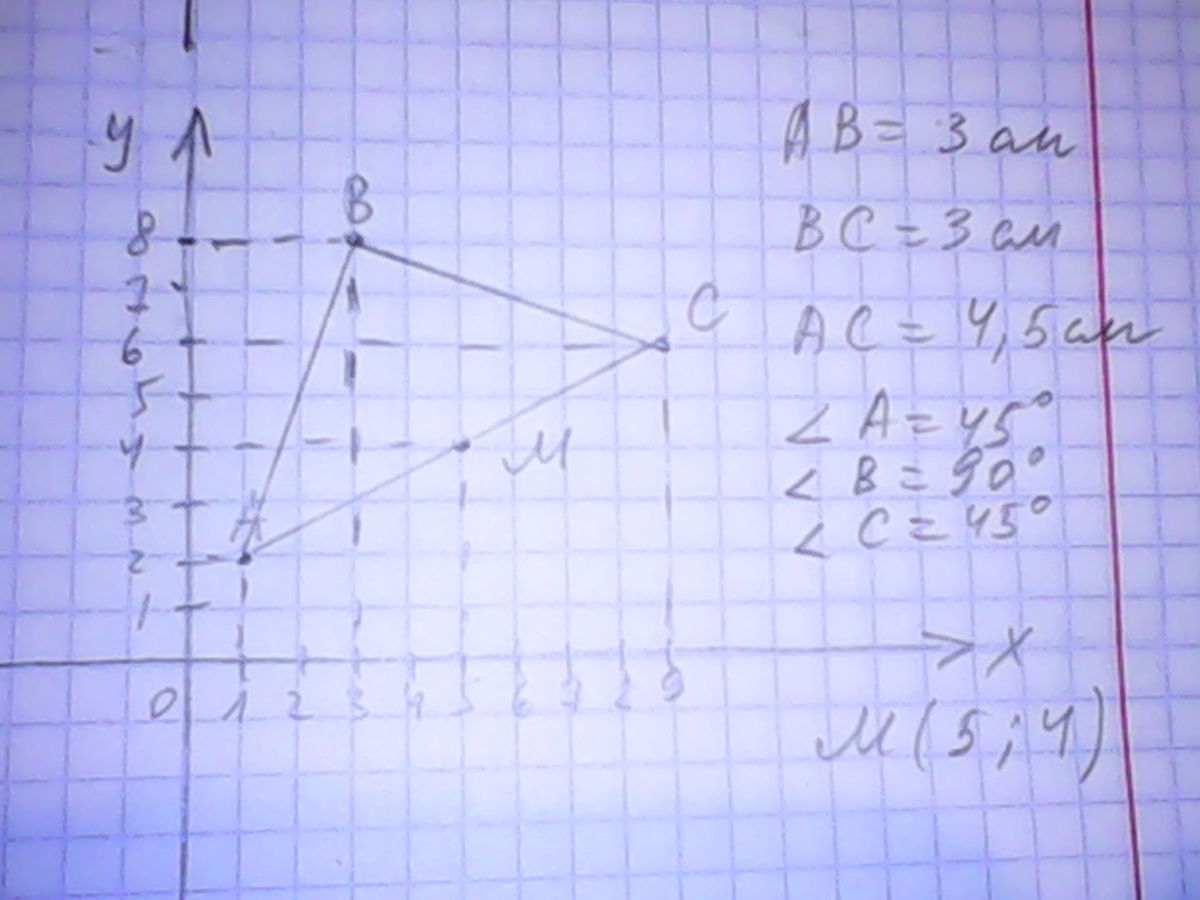 y
B
8
7
6
5
4
3
2
1
C
M
A
0 1 2 3 4 5 6 7 8 9
x
AB = 3 см
BC = 3 см
AC = 4,5 см
< A = 45°
< B = 90°
< C = 45°
M(5;4)